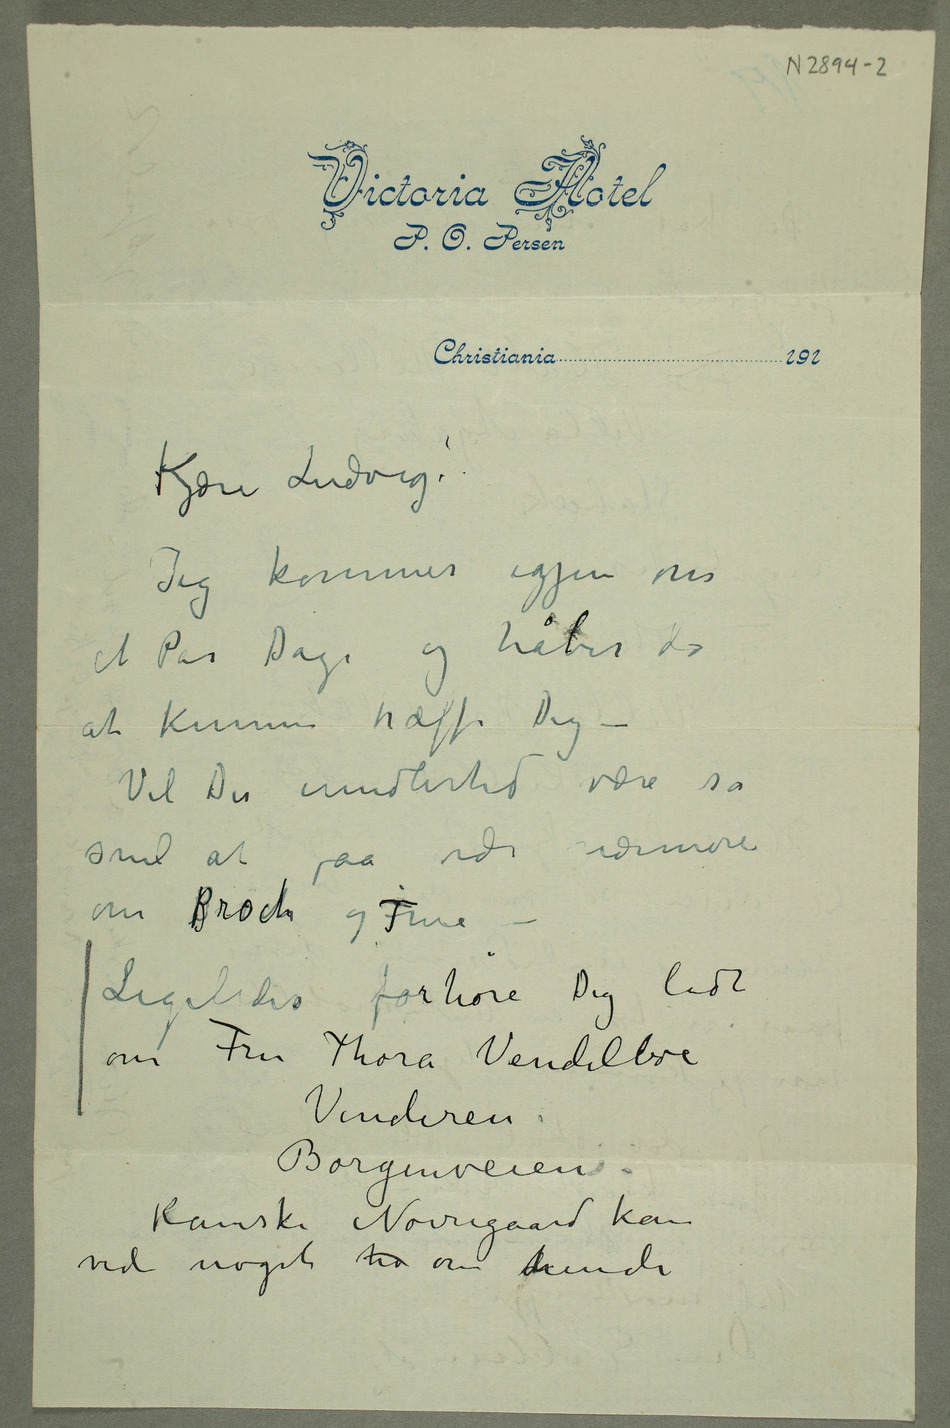 N2894-2
Victoria Hotel
P. O. Persen
Christiania 191
Kjære Ludvig!
Jeg kommer igjen om
et Par Dage og håber da
at kunne træffe Dig –
Vil Du imidlertid være så
snil at få rede nærmere
om Broch og Frue –
Ligeledes forhøre Dig lidt
om Fru Thora Vendelboe
Vinderen.
Borgenveien.
Kanske Nørregaard kan
vide noget om hende